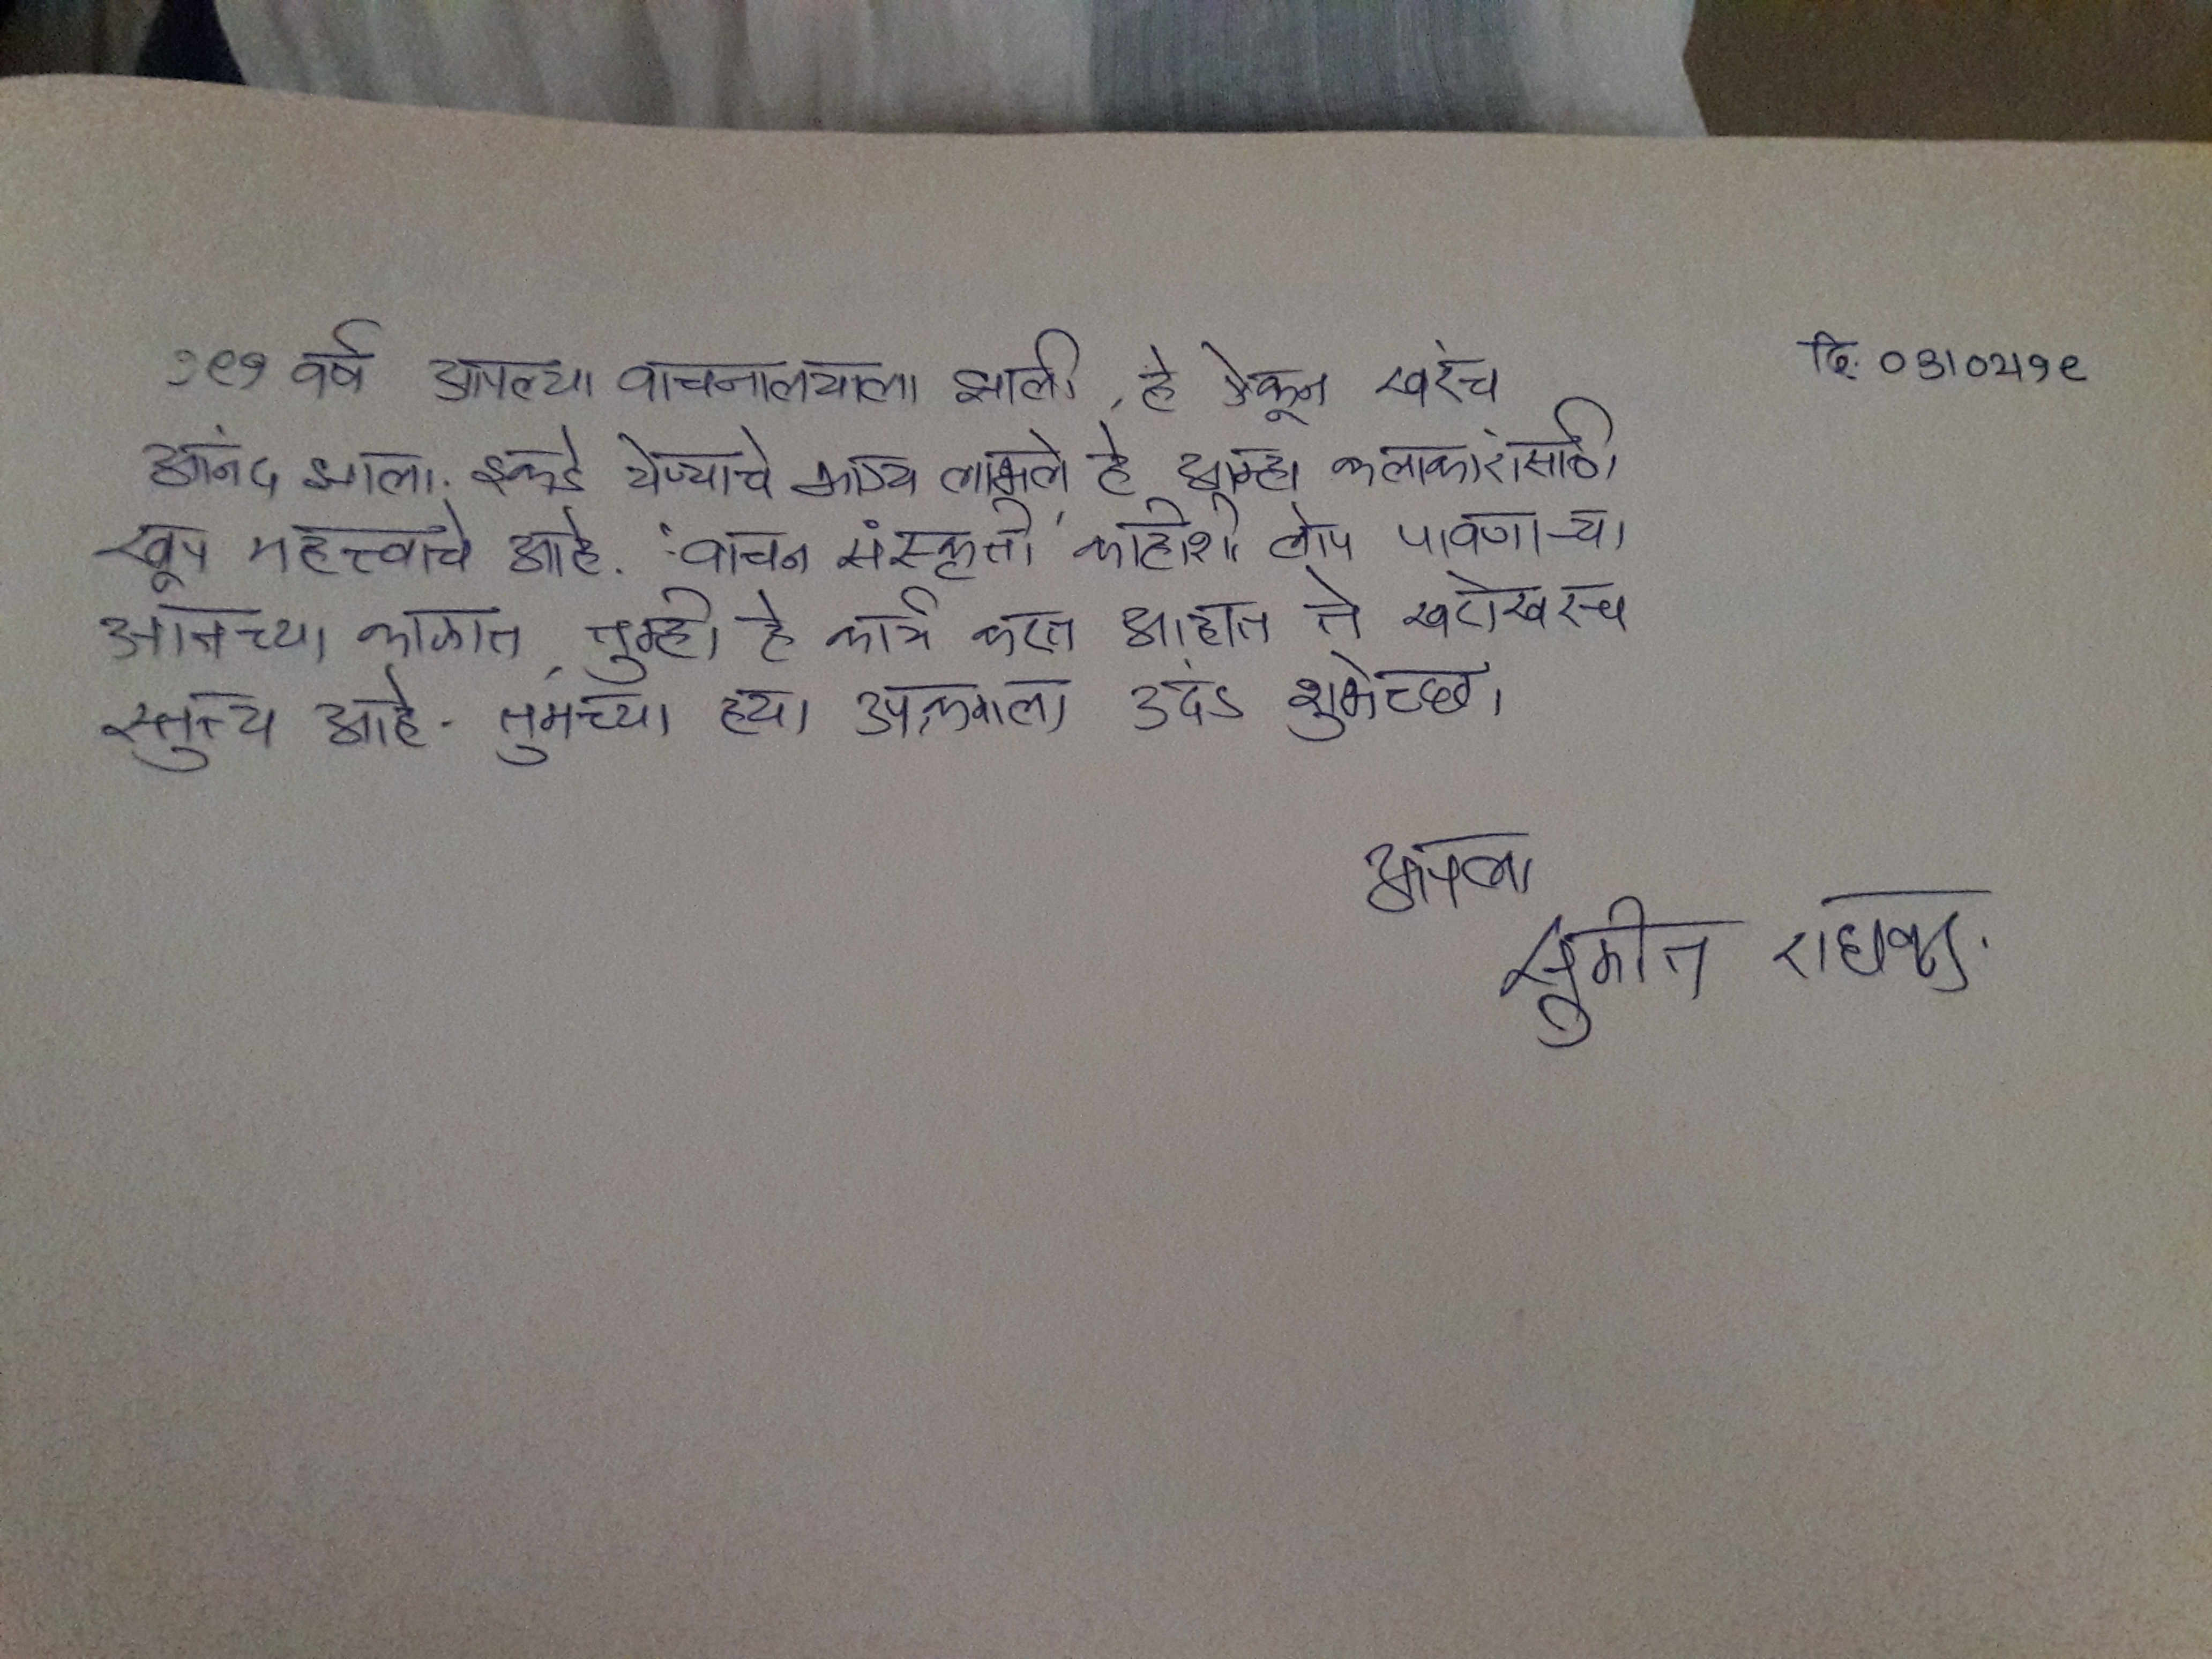 १९१ वर्ष आपल्या वाचनालयाला झाली, हे ऐकून खरंच
दि. ०३।०२।१९
आनंद झाला. इकडे येण्याचे भाग्य लाभले हे आम्हा कलाकारांसाठी
खूप महत्त्वाचे आहे. वाचन संस्कृती काहीशी लोप पावणाऱ्या
आजच्या काळात, तुम्ही हे कार्य करत आहात ते खरोखरच
स्तुत्य आहे. तुमच्या ह्या उपक्रमाला उदंड शुभेच्छा
आपला
सुमीत राघवन.